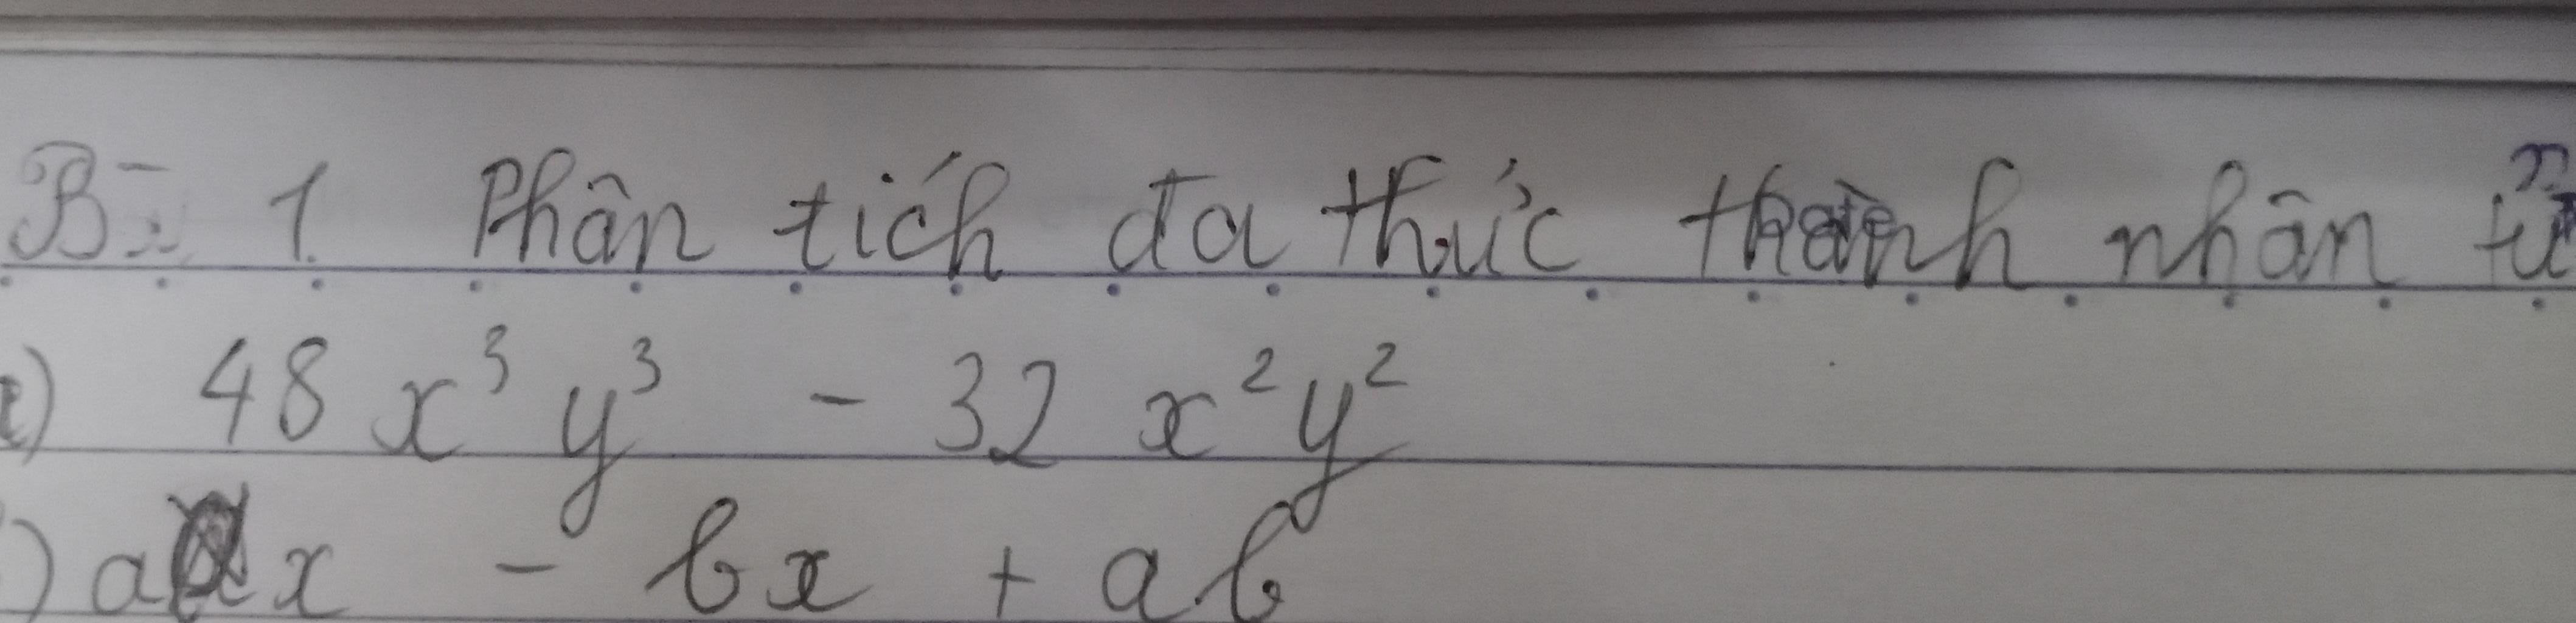 Bài 1. Phân tích đa thức thành nhân tử
a) 48 x³ y³ - 32 x² y²
) a x - bx + ab